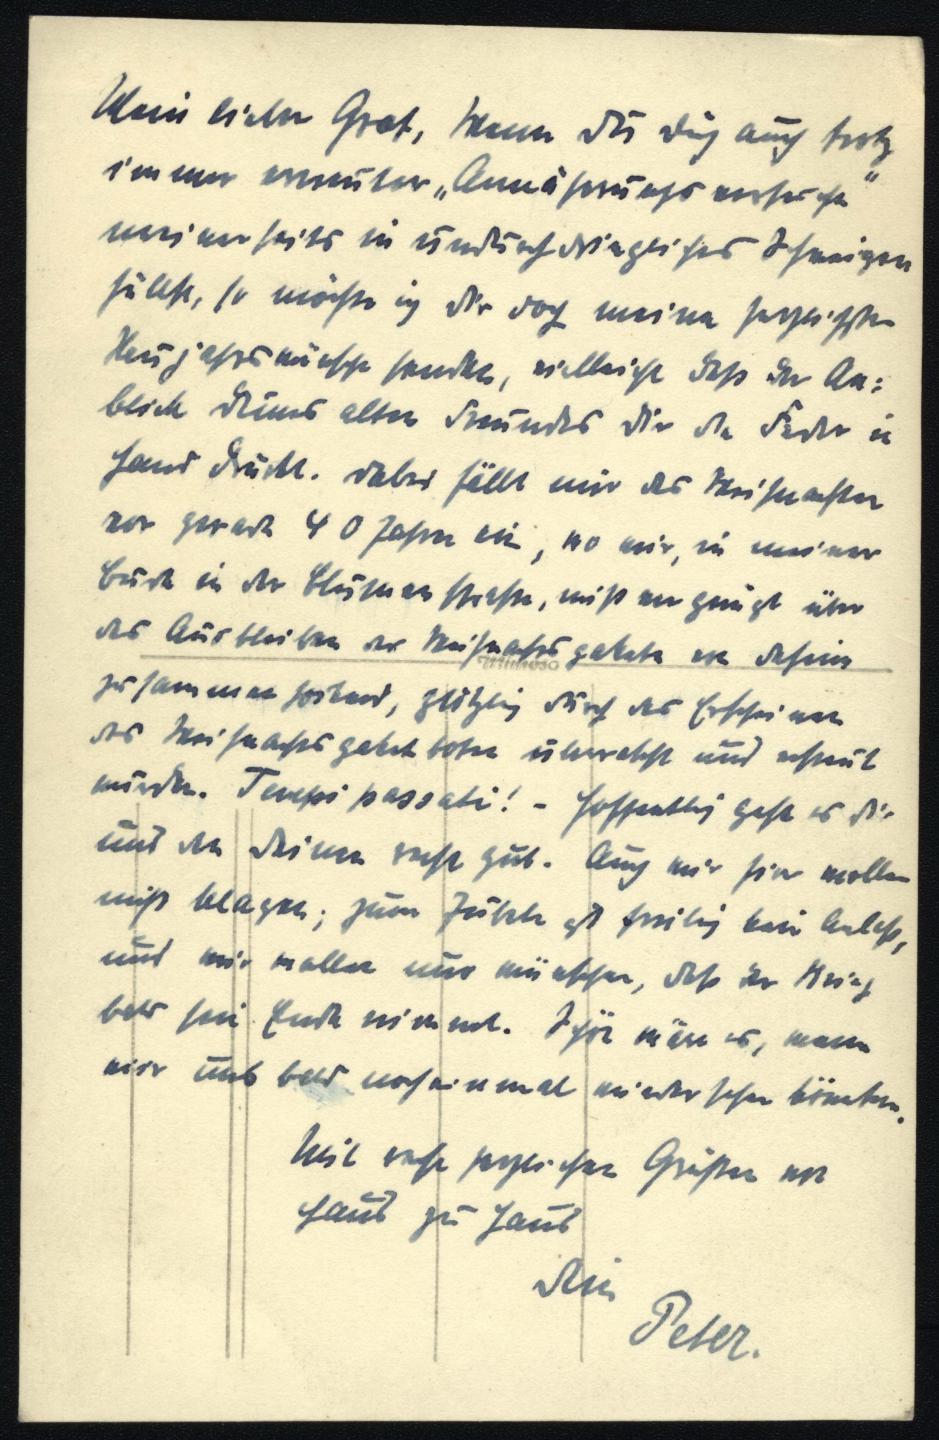 Mein lieber Graf, Wenn Du Dich auch trotz
immer erneuter „Annäherungsversuche"
meinerseits in undurchdringliches Schweigen
hüllst, so möchte ich Dir doch meine herzlichsten
Neujahrswünsche senden, vielleicht daß der An=
blick Deines alten Freundes Dir die Feder in
Hand drückt. Dabei fällt mir das Weihnachten
vor gerade 40 Jahren ein, wo wir, in meiner
Bude in der Blumenstraße, mißvergnügt über
das Ausbleiben der Weihnachtspakete von daheim
Mimosa
zusammen hockend, plötzlich durch das Erscheinen
des Weihnachtspaketboten überrascht und erfreut
wurden. Tempi passati! - Hoffentlich geht es Dir
und den Deinen recht gut. Auch wir hier wollen
nicht klagen; zum Jubeln ist freilich kein Anlaß,
und wir wollen nur wünschen, daß der Krieg
bald sein Ende nimmt. Schön wäre es, wenn
wir uns bald noch einmal wiedersehen könnten.
Mit recht herzlichen Grüßen von
Haus zu Haus
Dein
Peter.